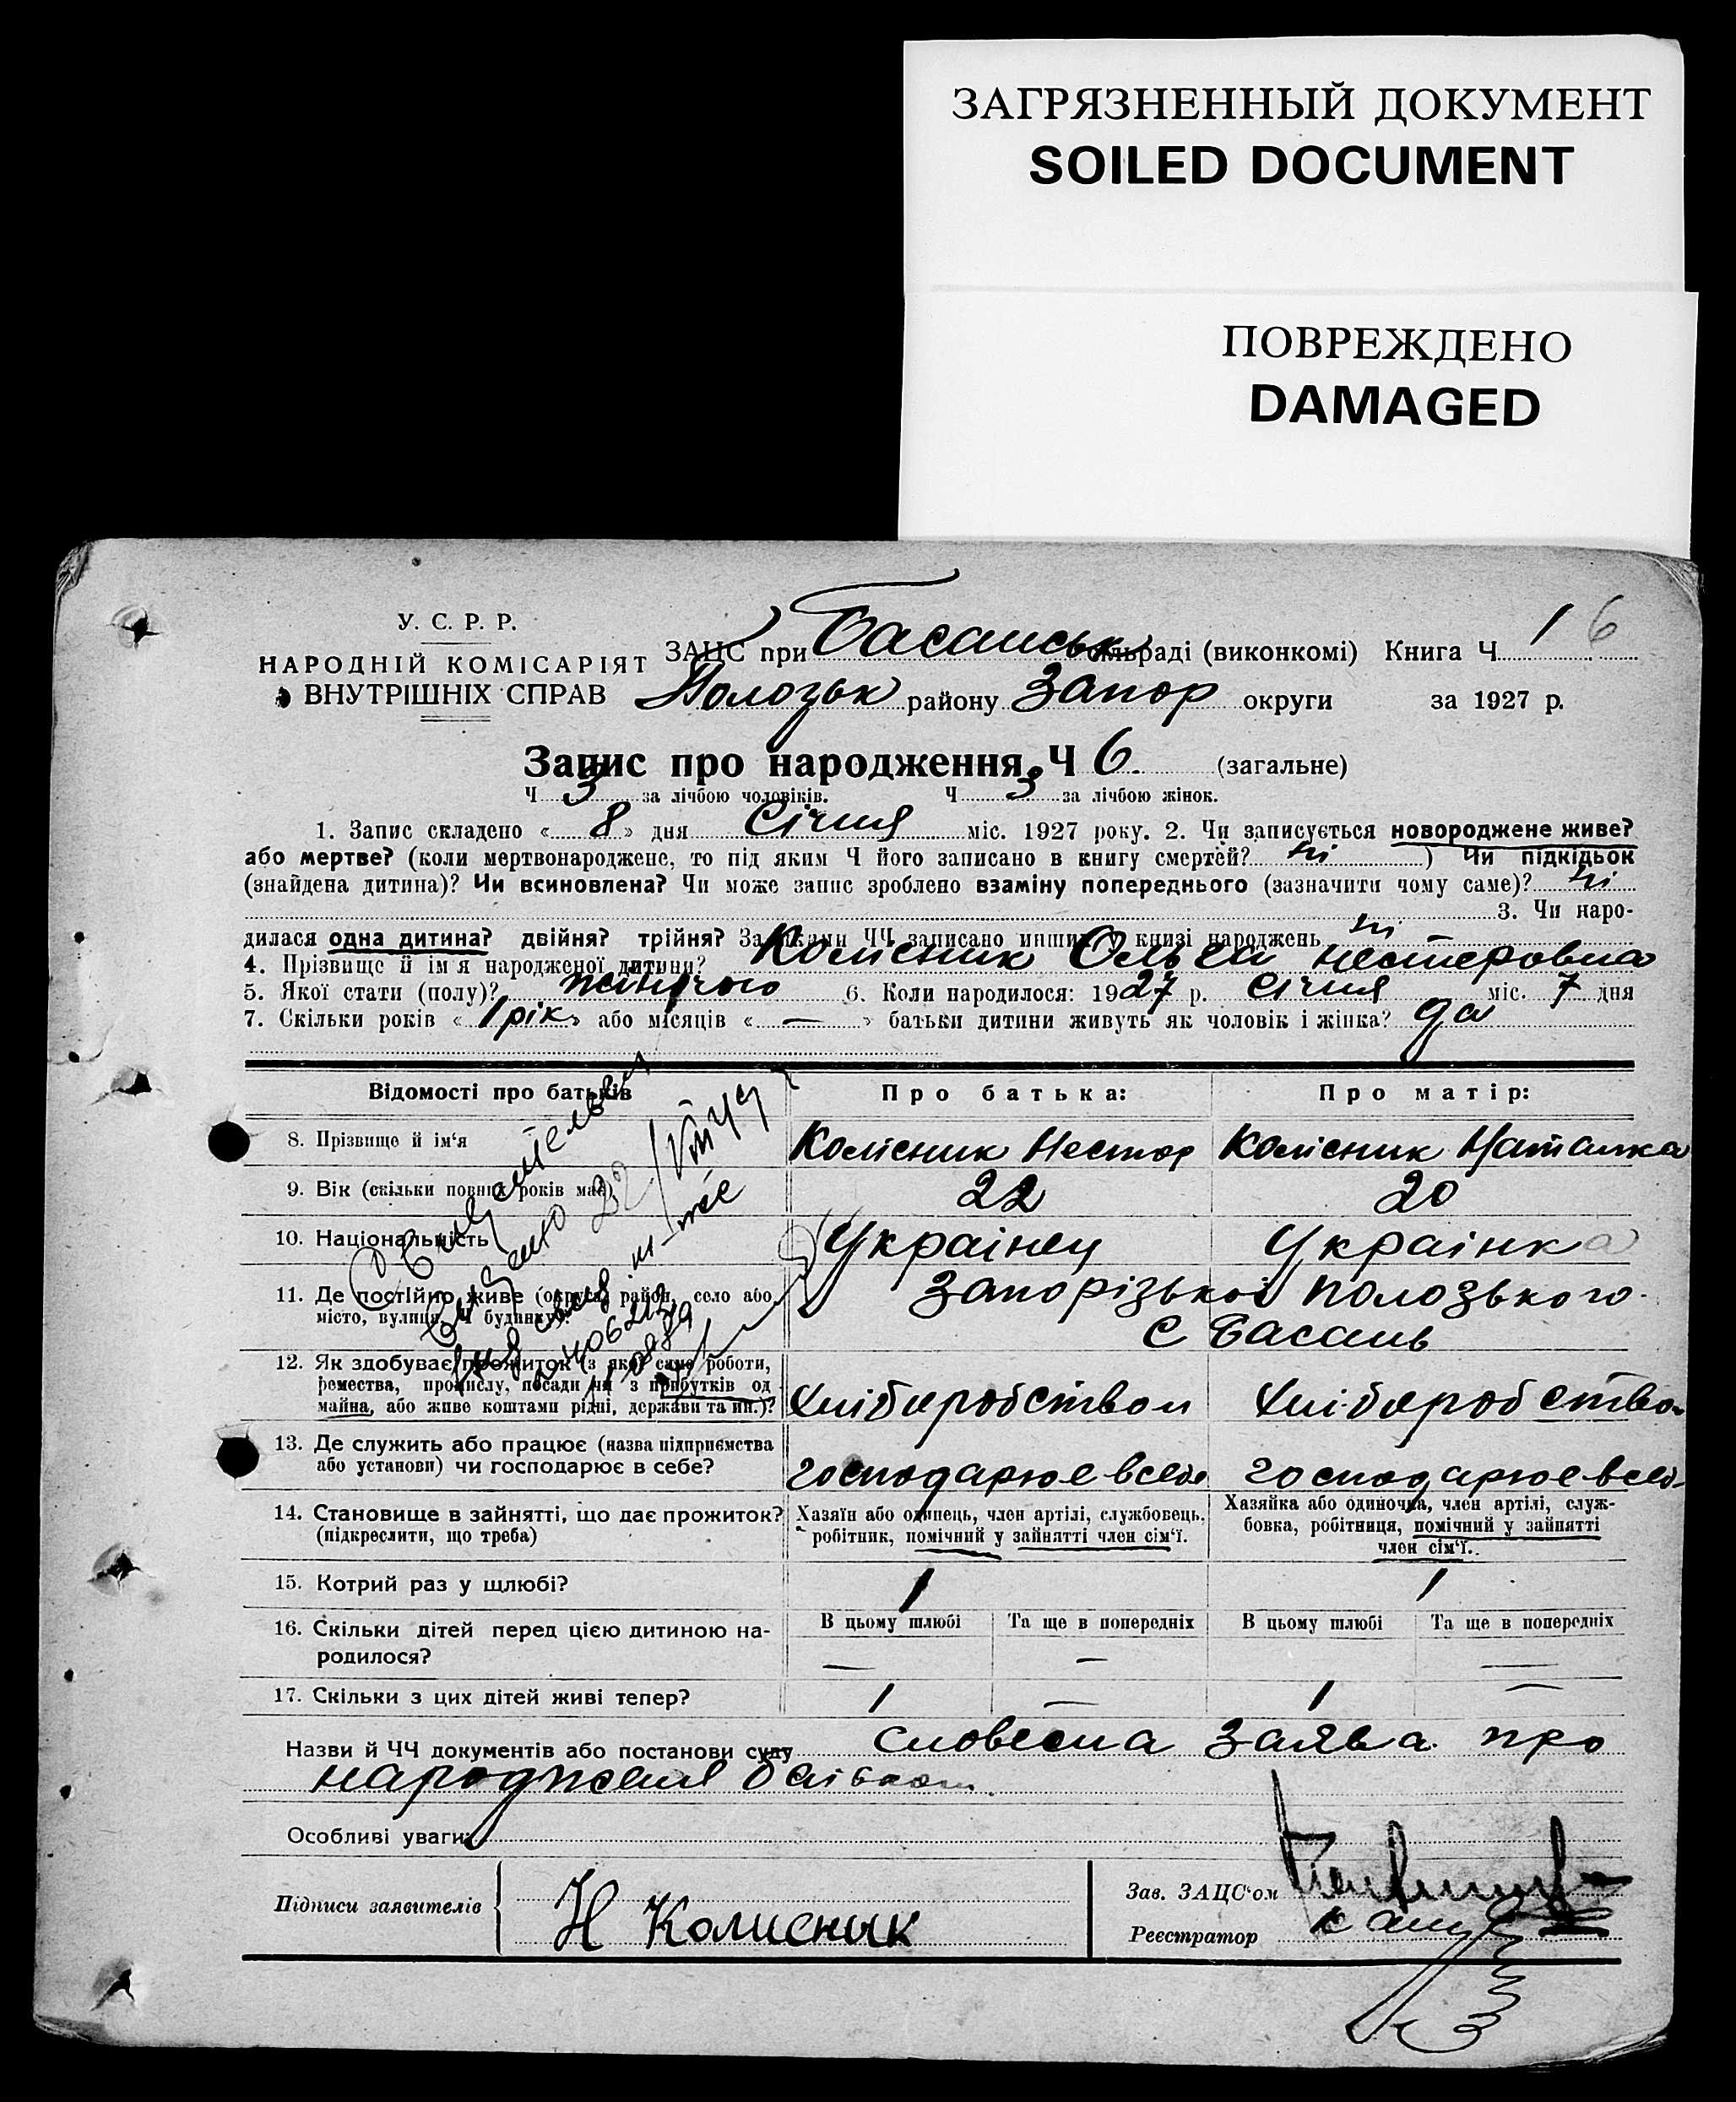 ЗАГРЯЗНЕННЫЙ ДОКУМЕНТ
SOILED DOCUMENT
ПОВРЕЖДЕНО
DAMAGED
У. С. Р. Р.
НАРОДНІЙ КОМІСАРІЯТ
ВНУТРІШНІХ СПРАВ
ЗАЦС при Басанськ сільраді (виконкомі) Книга Ч. 1 6
Полозьк району Запор округи за 1927 р.
Запис про народження Ч 6. (загальне)
Ч 3 за лічбою чоловіків. Ч 3 за лічбою жінок.
1. Запис складено « 8 » дня Січня міс. 1927 року. 2. Чи записується новороджене живе?
або мертве? (коли мертвонароджене, то під яким Ч його записано в книгу смертей? ні ) Чи підкідьок
(знайдена дитина)? Чи всиновлена? Чи може запис зроблено взаміну попереднього (зазначити чому саме)? ні
3. Чи наро-
дилася одна дитина? двійня? трійня? За якими ЧЧ записано инших у книзі народжень ні
4. Прізвище й ім'я народженої дитини? Колісник Ольга Нестеровна
5. Якої стати (полу)? жіночого 6. Коли народилося: 1927 р. Січня міс. 7 дня
7. Скільки років « 1 рік » або місяців « — » батьки дитини живуть як чоловік і жінка? да
Відомості про батьків Про батька: Про матір:
8. Прізвище й ім'я Колісник Нестор Колісник Наталка
9. Вік (скільки повних років має) 22 20
10. Національність Українец Українка
11. Де постійно живе (округа, район, село або Запорізької Полозького
місто, вулиця, Ч будинку)? С Басань
12. Як здобуває прожиток (з якої саме роботи,
ремества, промислу, посади чи з прибутків од
майна, або живе коштами рідні, держави та ин.)? Хліборобством Хліборобством
13. Де служить або працює (назва підприємства
або установи) чи господарює в себе? господарює в себе господарює в себе
14. Становище в зайнятті, що дає прожиток? Хазяїн або одинець, член артілі, службовець, Хазяйка або одиночка, член артілі, служ-
(підкреслити, що треба) робітник, помічний у зайнятті член сім'ї. бовка, робітниця, помічний у зайнятті
член сім'ї.
15. Котрий раз у шлюбі? 1 1
16. Скільки дітей перед цією дитиною на- В цьому шлюбі Та ще в попередніх В цьому шлюбі Та ще в попередніх
родилося? — — —
17. Скільки з цих дітей живі тепер? 1 — 1 —
Назви й ЧЧ документів або постанови суду словесна заява про
народження
Особливі уваги:
Підписи заявителів Н Колисник
Зав. ЗАЦС'ом
Реєстратор